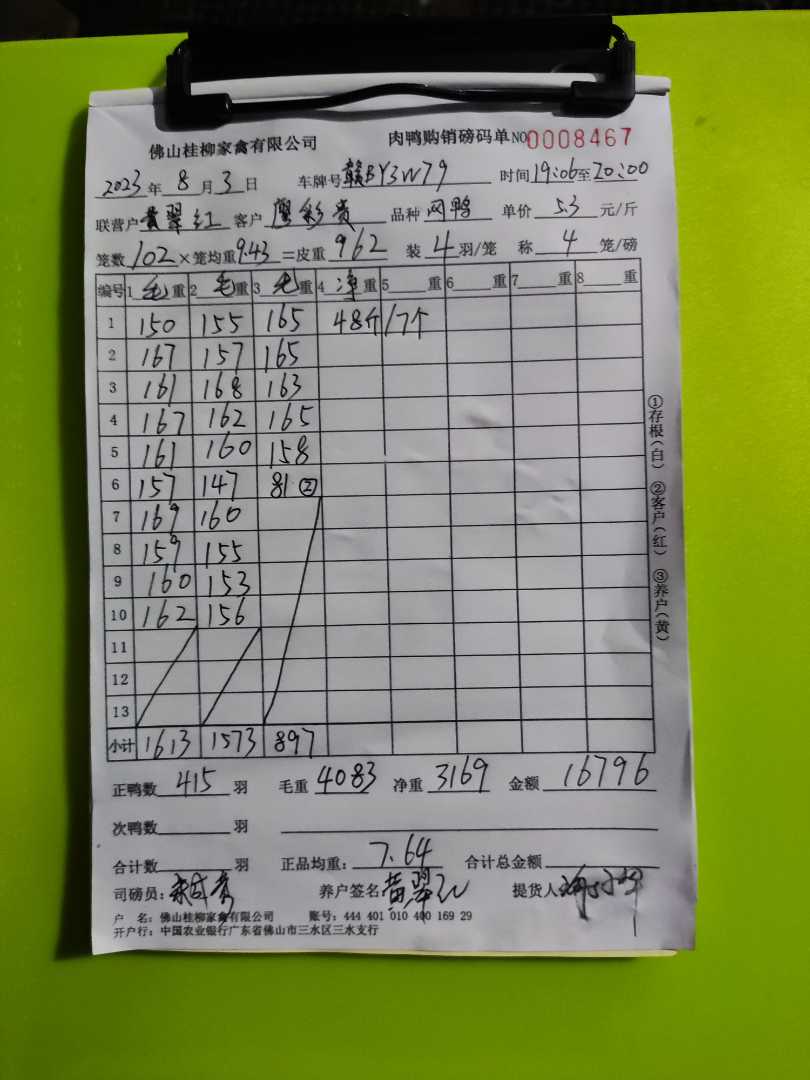 佛山桂柳家禽有限公司 肉鸭购销磅码单 NO 0008467
2023年8月3日 车牌号 赣BY3W79 时间 19:06至20:00
联营户 黄翠红 客户 廖彩贵 品种 网鸭 单价 5.3 元/斤
笼数 102 ×笼均重 9.43 =皮重 962 装 4 羽/笼 称 4 笼/磅
编号 1 毛重 2 毛重 3 毛重 4 净重 5 重 6 重 7 重 8 重
1 150 155 165 48斤/7个
2 167 157 165
3 161 168 163
4 167 162 165
5 161 160 158
6 157 147 81 ②
7 169 160
8 159 155
9 160 153
10 162 156
11
12
13
小计 1613 1573 897
正鸭数 415 羽 毛重 4083 净重 3169 金额 16796
次鸭数 羽
合计数 羽 正品均重: 7.64 合计总金额
司磅员: 养户签名 黄翠红 提货人
户 名: 佛山桂柳家禽有限公司 账号: 444 401 010 400 169 29
开户行: 中国农业银行广东省佛山市三水区三水支行
①存根(白) ②客户(红) ③养户(黄)